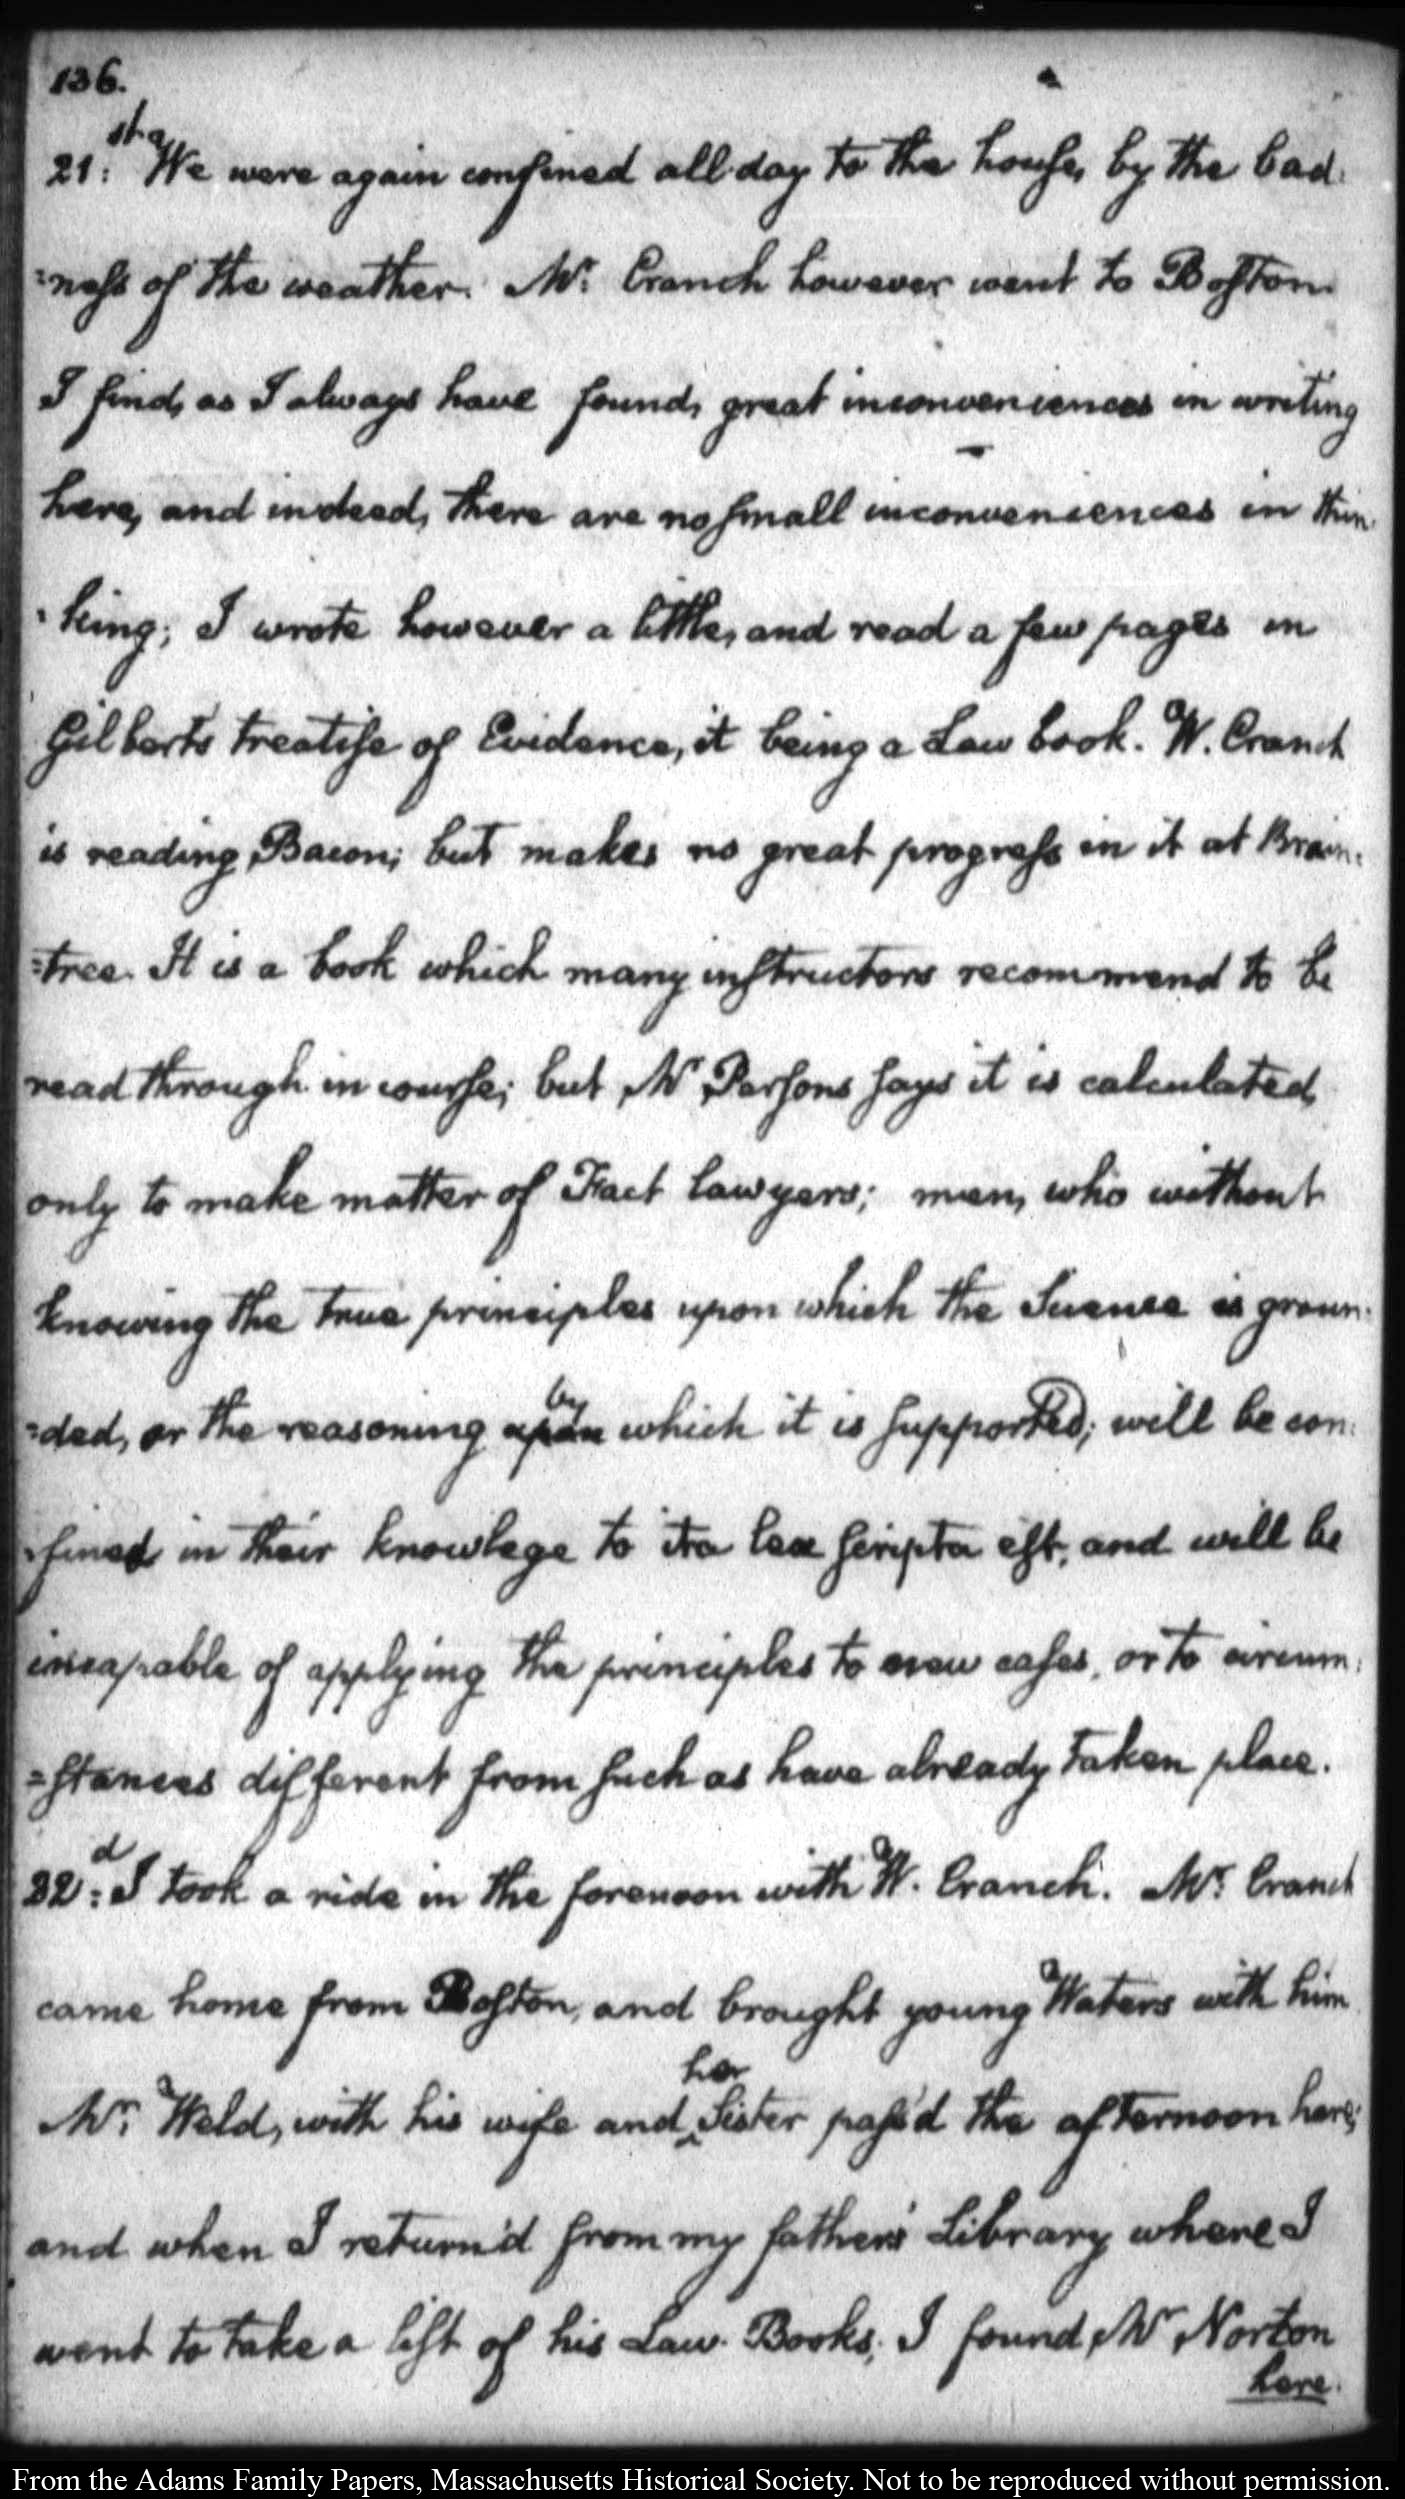 136.
21:st We were again confined all day to the house, by the bad-
=ness of the weather. Mr: Cranch however went to Boston.
I find, as I always have found, great inconveniences in writing
here, and indeed, there are no small inconveniences in thin-
-king; I wrote however a little, and read a few pages in
Gilberts treatise of Evidence, it being a Law book. W. Cranch
is reading Bacon; but makes no great progress in it at Brain-
=tree. It is a book which many instructors recommend to be
read through in course; but Mr Parsons says it is calculated,
only to make matter of Fact lawyers; men, who without
knowing the true principles upon which the Science is groun-
=ded, or the reasoning upon by which it is supported; will be con-
-fined in their knowlege to ita lex scripta est, and will be
incapable of applying the principles to new cases, or to circum-
=stances different from such as have already taken place.
22:d I took a ride in the forenoon with W. Cranch. Mr: Cranch
came home from Boston, and brought young Waters with him
Mr: Weld, with his wife and her Sister pass'd the afternoon here;
and when I return'd from my father's Library where I
went to take a list of his Law Books, I found Mr Norton
here.
From the Adams Family Papers, Massachusetts Historical Society. Not to be reproduced without permission.